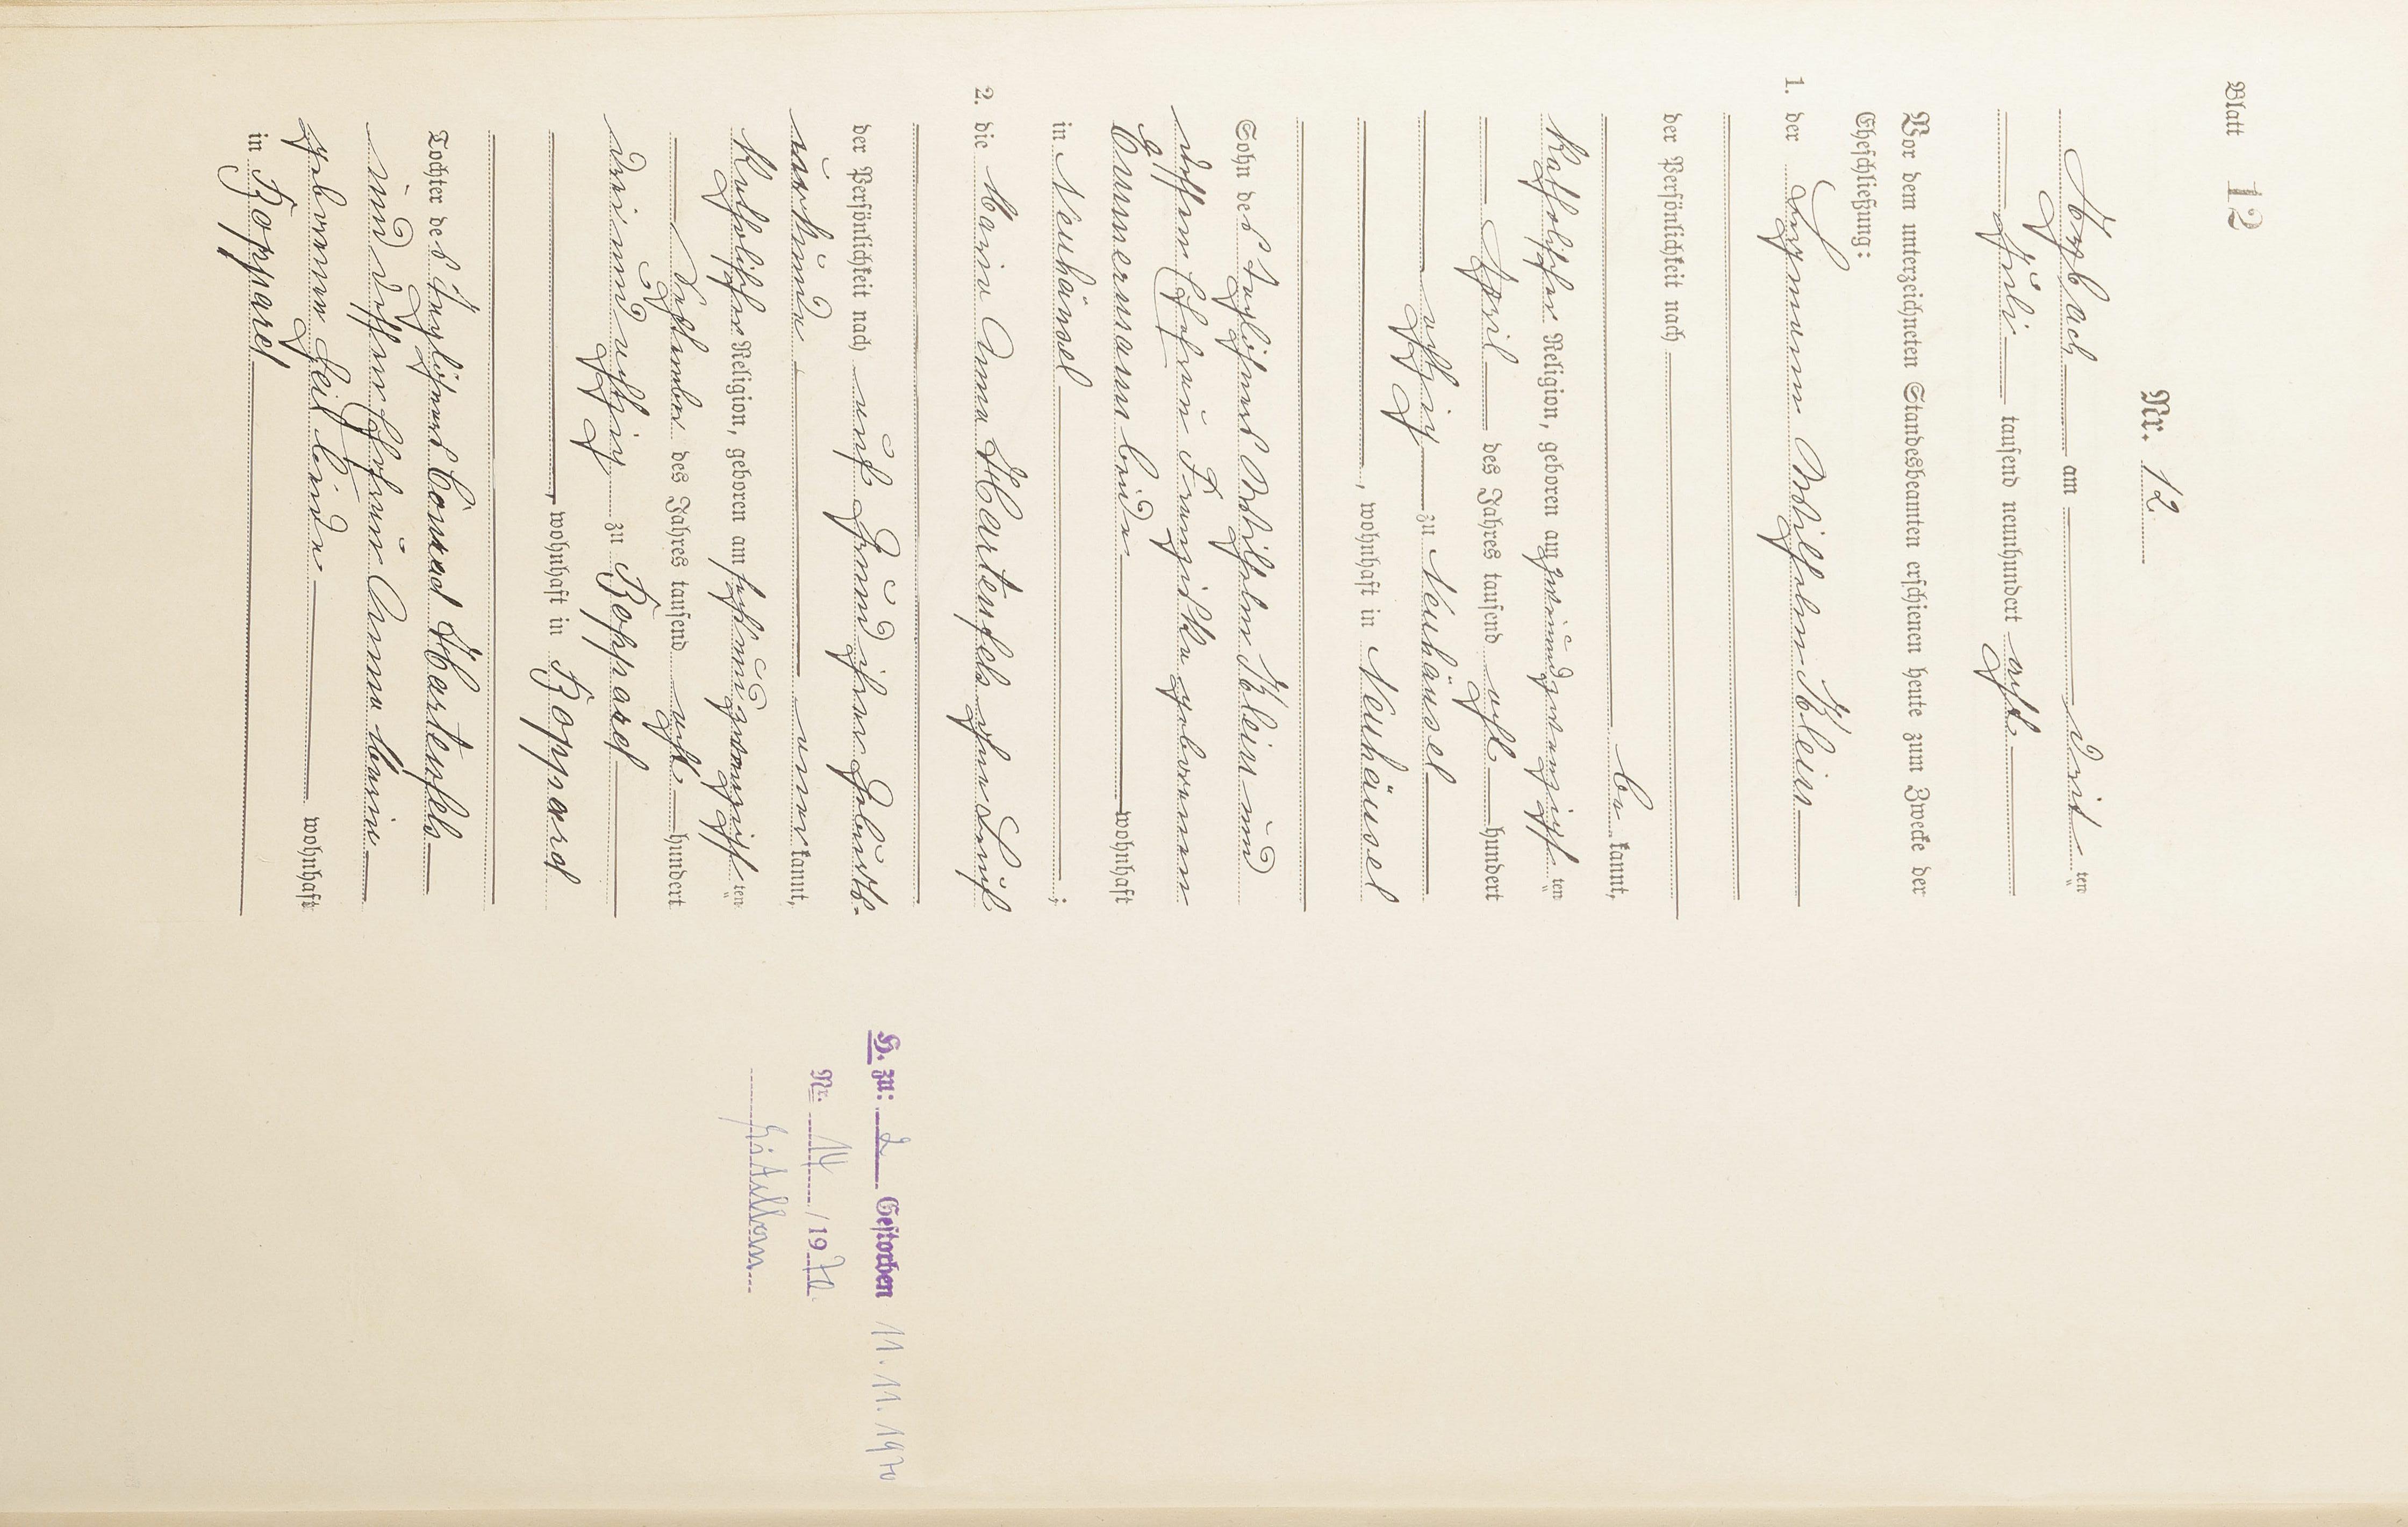 Blatt 12
Nr. 12
Arzbach am drit ten
Juli tausend neunhundert acht
Vor dem unterzeichneten Standesbeamten erschienen heute zum Zwecke der
Eheschließung:
1. der Bergmann Wilhelm Klein
der Persönlichkeit nach
be kannt,
katholischer Religion, geboren am zweiundzwanzigst ten
April des Jahres tausend acht hundert
achtzig zu Neuhäusel
, wohnhaft in Neuhäusel
Sohn des Taglöhners Wilhelm Klein und
dessen Ehefrau Franziska geborenen
Bummermann beide wohnhaft
in Neuhäusel ;
2. die Maria Anna Hartenfels ohne Beruf
der Persönlichkeit nach auf Grund ihrer Geburts-
urkunde aner kannt,
katholischer Religion, geboren am sechsundzwanzigst ten
Dezember des Jahres tausend acht hundert
dreiundachtzig zu Boppard
, wohnhaft in Boppard
Tochter des Taglöhners Conrad Hartenfels
und dessen Ehefrau Anna Maria
geborenen Heil beide wohnhaft
in Boppard
H. zu: 2 Gestorben 11. 11. 1970
Nr. 14 / 19 70